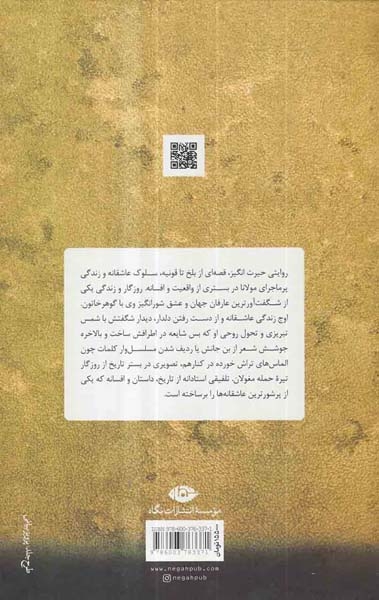 روایتی حیرت انگیز، قصه‌ای از بلخ تا قونیه، سلوک عاشقانه و زندگی
پرماجرای مولانا در بستری از واقعیت و افسانه. روزگار و زندگی یکی
از شگفت‌آورترین عارفان جهان و عشق شورانگیز وی با گوهرخاتون.
اوج زندگی عاشقانه و از دست رفتن دلدار، دیدار شگفتش با شمس
تبریزی و تحول روحی او که بس شایعه در اطرافش ساخت و بالاخره
جوشش شعر از بن جانش یا ردیف شدن مسلسل‌وار کلمات چون
الماس‌های تراش خورده در کنارهم، تصویری در بستر تاریخ از روزگار
تیرهٔ حمله مغولان. تلفیقی استادانه از تاریخ، داستان و افسانه که یکی
از پرشورترین عاشقانه‌ها را برساخته است.
مؤسسهٔ انتشارات نگاه
ISBN: 978-600-376-337-1
9786003763371
۱۵۵۰۰۰ تومان
www.negahpub.com
negahpub
طرح جلد: